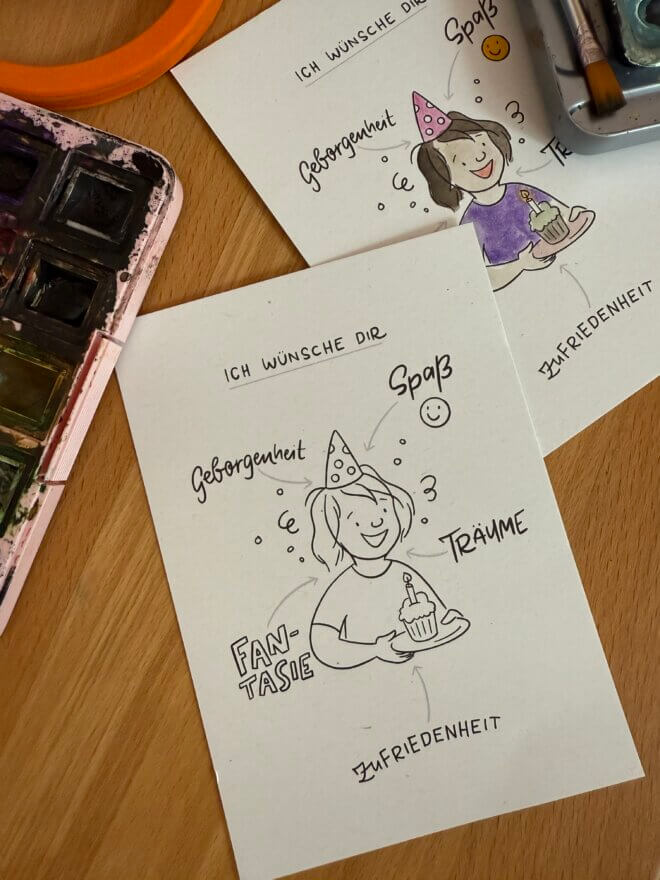 ICH WÜNSCHE DIR
Spaß
Geborgenheit
ZUFRIEDENHEIT
ICH WÜNSCHE DIR
Spaß
Geborgenheit
TRÄUME
FAN-
TASIE
ZUFRIEDENHEIT